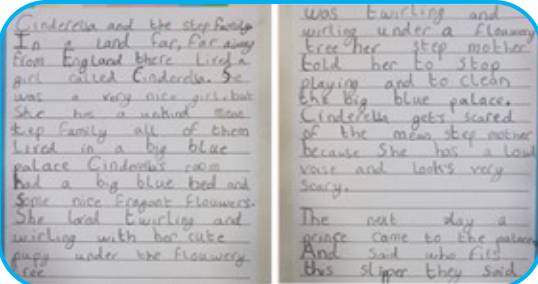 Cinderella and the step family
In a land far, far away
from England there lived a
girl called Cinderella. She
was a very nice girl. but
She has a unkind mean
step family all of them
Lived in a big blue
palace Cinderella's room
had a big blue bed and
Some nice Fragant Flouwers.
She lovd twirling and
wirling with her cute
pupy under the Flouwery
tree
was twirling and
wirling under a flouwery
tree her step mother
told her to stop
playing and to clean
the big blue palace.
Cinderella gets scared
of the mean step mother
because She has a Loud
voise and looks very
Scary.
The next day a
prince came to the palace
And said who fits
this slipper they said